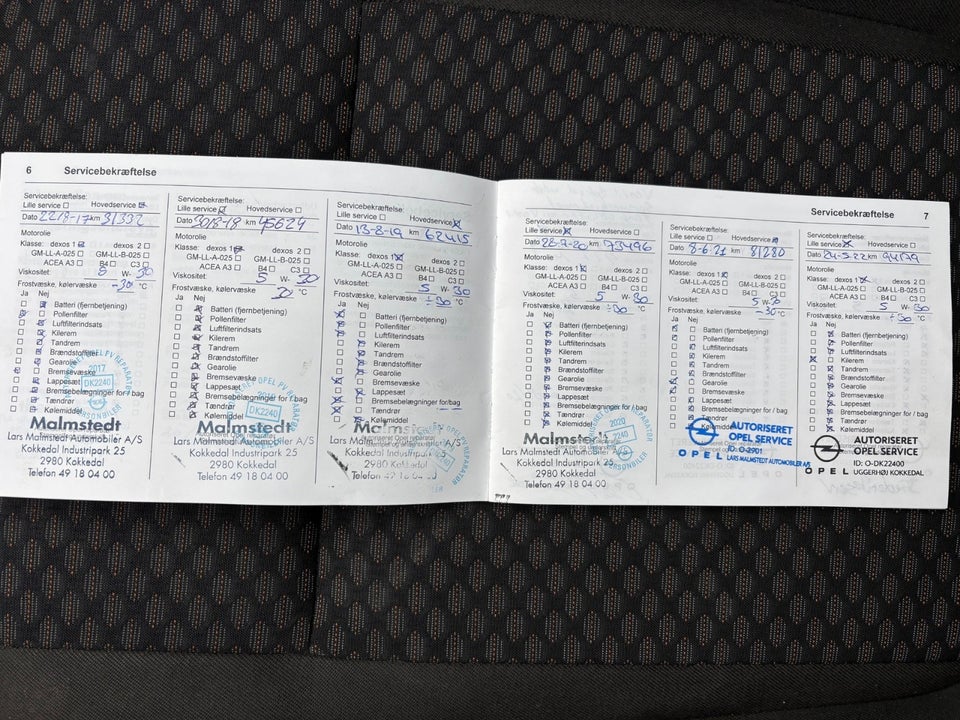 6 Servicebekræftelse
Servicebekræftelse:
Lille service Hovedservice
Dato 22/8-17 km 31332
Motorolie
Klasse: dexos 1 dexos 2
GM-LL-A-025 GM-LL-B-025
ACEA A3 B4 C3
Viskositet: 5 W- 30
Frostvæske, kølervæske -30 °C
Ja Nej
Batteri (fjernbetjening)
Pollenfilter
Luftfilterindsats
Kilerem
Tandrem
Brændstoffilter
Gearolie
Bremsevæske
Lappesæt
Bremsebelægninger for / bag
Tændrør
Kølemiddel
2017
DK2240
Malmstedt
Lars Malmstedt Automobiler A/S
Kokkedal Industripark 25
2980 Kokkedal
Telefon 49 18 04 00
Servicebekræftelse:
Lille service Hovedservice
Dato 30/8-18 km 45624
Motorolie
Klasse: dexos 1 dexos 2
GM-LL-A-025 GM-LL-B-025
ACEA A3 B4 C3
Viskositet: 5 W- 30
Frostvæske, kølervæske 30 °C
Ja Nej
Batteri (fjernbetjening)
Pollenfilter
Luftfilterindsats
Kilerem
Tandrem
Brændstoffilter
Gearolie
Bremsevæske
Lappesæt
Bremsebelægninger for / bag
Tændrør
Kølemiddel
DK2240
Malmstedt
Lars Malmstedt Automobiler A/S
Kokkedal Industripark 25
2980 Kokkedal
Telefon 49 18 04 00
Servicebekræftelse:
Lille service Hovedservice
Dato 13-8-19 km 62415
Motorolie
Klasse: dexos 1 dexos 2
GM-LL-A-025 GM-LL-B-025
ACEA A3 B4 C3
Viskositet: 5 W- 30
Frostvæske, kølervæske ÷30 °C
Ja Nej
Batteri (fjernbetjening)
Pollenfilter
Luftfilterindsats
Kilerem
Tandrem
Brændstoffilter
Gearolie
Bremsevæske
Lappesæt
Bremsebelægninger for/bag
Tændrør
Kølemiddel
Malmstedt
Lars Malmstedt Automobiler A/S
Kokkedal Industripark 25
2980 Kokkedal
Telefon 49 18 04 00
Servicebekræftelse 7
Servicebekræftelse:
Lille service Hovedservice
Dato 28-9-20 km 73496
Motorolie
Klasse: dexos 1 dexos 2
GM-LL-A-025 GM-LL-B-025
ACEA A3 B4 C3
Viskositet: 5 W- 30
Frostvæske, kølervæske ÷30 °C
Ja Nej
Batteri (fjernbetjening)
Pollenfilter
Luftfilterindsats
Kilerem
Tandrem
Brændstoffilter
Gearolie
Bremsevæske
Lappesæt
Bremsebelægninger for / bag
Tændrør
Kølemiddel
2020
2240
Malmstedt
Lars Malmstedt Automobiler A/S
Kokkedal Industripark 25
2980 Kokkedal
Telefon 49 18 04 00
Servicebekræftelse:
Lille service Hovedservice
Dato 8-6-21 km 81280
Motorolie
Klasse: dexos 1 dexos 2
GM-LL-A-025 GM-LL-B-025
ACEA A3 B4 C3
Viskositet: 5 W-30
Frostvæske, kølervæske -30 °C
Ja Nej
Batteri (fjernbetjening)
Pollenfilter
Luftfilterindsats
Kilerem
Tandrem
Brændstoffilter
Gearolie
Bremsevæske
Lappesæt
Bremsebelægninger for / bag
Tændrør
Kølemiddel
AUTORISERET
OPEL SERVICE
ID: O-2901
OPEL LARS MALMSTEDT AUTOMOBILER A/S
Servicebekræftelse:
Lille service Hovedservice
Dato 24-5-22 km 94179
Motorolie
Klasse: dexos 1 dexos 2
GM-LL-A-025 GM-LL-B-025
ACEA A3 B4 C3
Viskositet: 5 W- 30
Frostvæske, kølervæske ÷30 °C
Ja Nej
Batteri (fjernbetjening)
Pollenfilter
Luftfilterindsats
Kilerem
Tandrem
Brændstoffilter
Gearolie
Bremsevæske
Lappesæt
Bremsebelægninger for / bag
Tændrør
Kølemiddel
AUTORISERET
OPEL SERVICE
ID: O-DK22400
OPEL UGGERHØJ KOKKEDAL